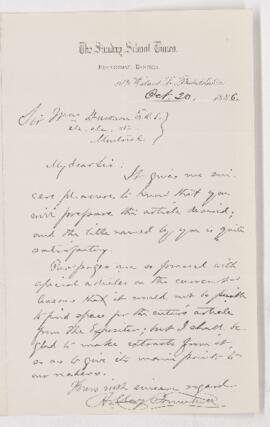 The Sunday School Times.
Editorial Rooms,
Walnut St., Philadelphia
Oct. 20, 1886.
Sir Wm Dawson
etc., etc., etc.
Montreal.
My dear Sir:
It gives me sin-
cere pleasure to know that you
will prepare the article desired;
and the title named by you is quite
satisfactory.
Our pages are so pressed with
special articles on the current
lessons that it would not be possible
to find space for the entire article
from the Expositor; but I shall be
glad to make extracts from it,
so as to give its main points to
our readers.
Yours with sincere regard
H. Clay Trumbull